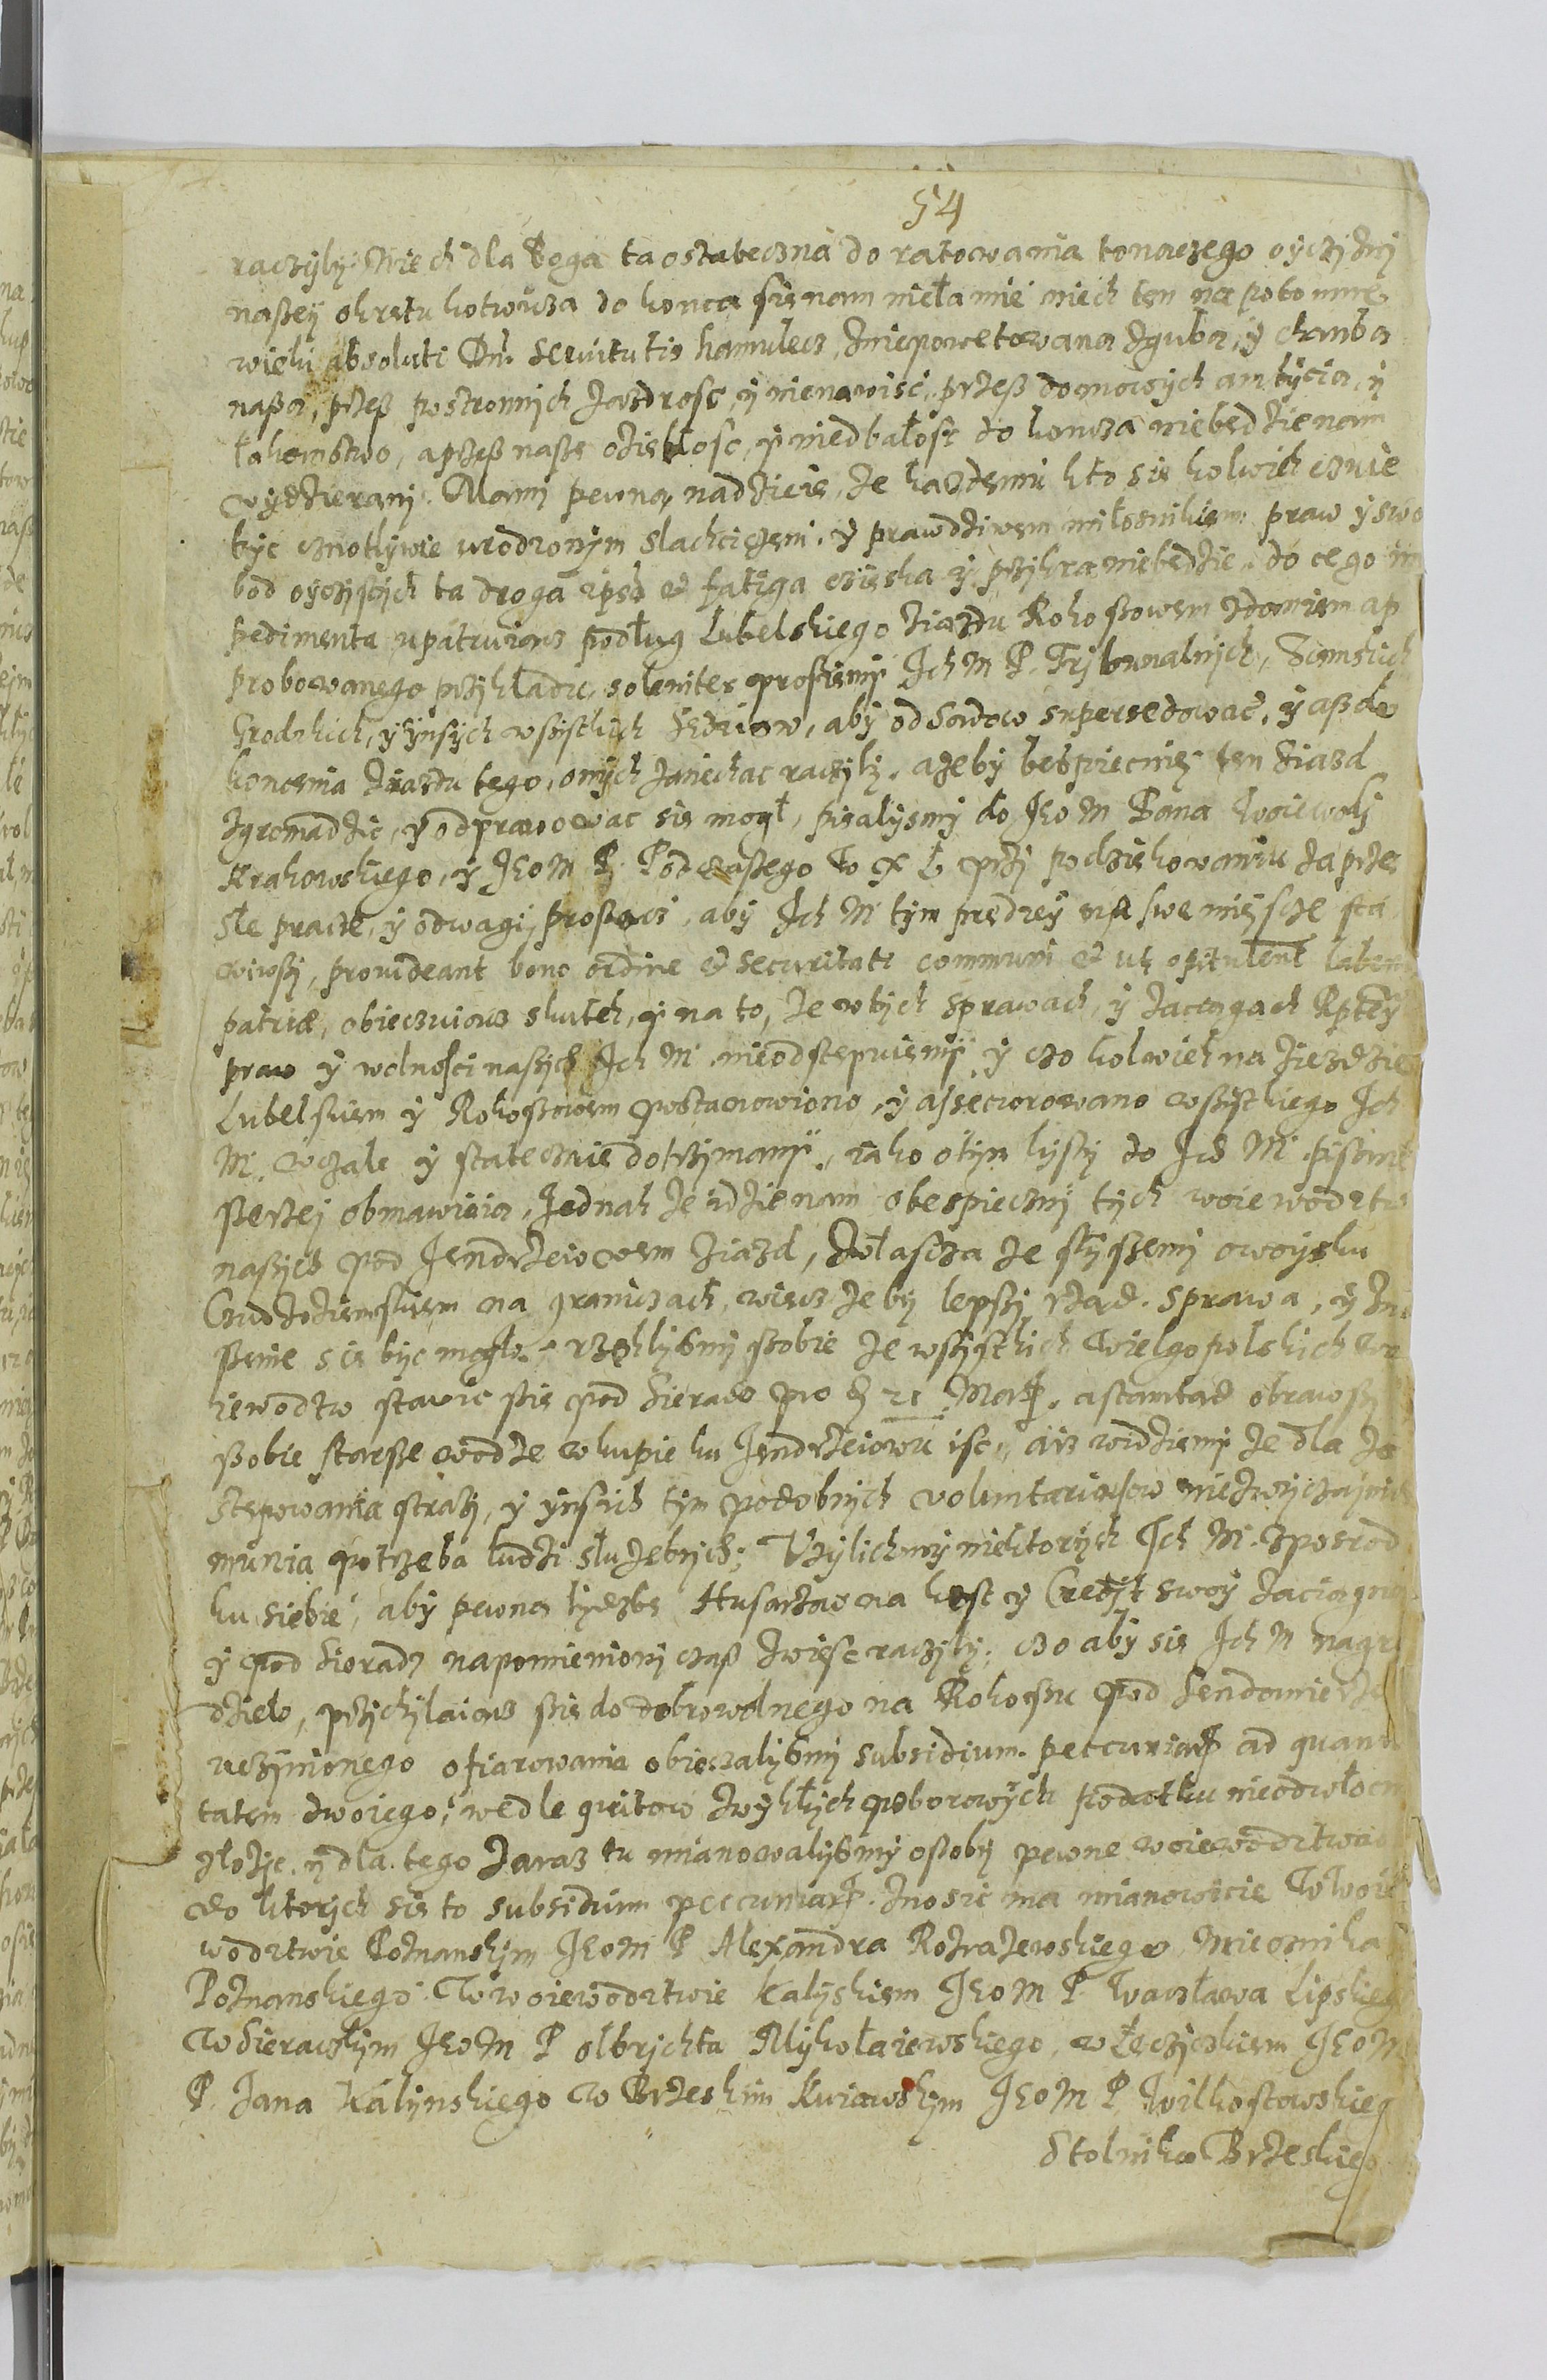 54
raczyly. Niech dla Boga ta ostateczna do ratowania tonaczego oyczizni
naßey okrętu kotwicza do konca się nam niełamie niech ten na potomne
wieki absoluti Dni servitutis hamulecz, Zniepowetowana Zguba, y chanba
naßa, przeß postronnych Zazdrosc, y nienawisc, przeß domowych ambycia, y
łakomstwo, a przeß nasze oziębłosc, y niedbałosc do koncza niebędzie nam
wydzierany. Mamy pewna nadzieię, Ze kazdemu kto się kolwiek czuie
byc cnotlywie urodzonym slachcięzem. y prawdziwem miłosnikiem praw y swo
bod oyczistych ta droga ipsa et fatiga cziężka y przikra niebedzie. do cego im
pedimenta upatruiącz podług Lubelskiego Ziazdu Rokoßowem zdaniem ap
probowanego przikładu, soleniter prosiemy Ich M P. Trybunalnych, Ziemskich
Grodzkich, y ynsych wßystkich Sędziow, aby od Sądow supersedowac, y aß do
koncenia Ziazdu tego, onych zaniechac raczyly. ażeby bespiecznię ten Siazd
Zgromadzic, y odprawowac się mogł, pisalysmy do JeoM Pana Woiewody
Krakowskiego, y JeoM P. Podczaßego W X L przy podziekowaniu za prze
słe pracze, y odwagi, proßacz, aby Ich M tym prędzey na swe miesce sta
wiwsży, provideant bono ordine et securitati communi et ut opitulent labenti
patriæ, obiecuiącz skutek, y na to, Ze wtych sprawach, y Zaciągach Rptey
praw y wolnosci nasżych Ich M nieodstepuiemy y czo kolwiek na Ziezdzie
Lubelskiem y Rokoßowem postanowiono, y assecurowano wßystkiego Ich
M. wczale y statecznie dotrzimamy, iako o tym lysty do Ich M pisane
sżerzej obmawiaią, Jednak Ze idzie nam o bespieczny tych woiewodztw
nasżych pod Jendrzeiowem Ziazd, Zwłascza Ze słyßemy o woysku
Cudzoziemskiem na graniczach, więcz Zeby lepßy rząd, sprawa, y Zno
ßenie się byc mogło, rzeklysmy ßobie Ze wßystkich Wielgopolskich wo
iewodztw stawic się pod Sieradz pro d 21 Mar. a stamtąd obrawsży
sżobie starße wodze w kupie ku Jendrzeiowu isc, aiz widziemy Ze dla Za
stępowania straży, y ynsych tym podobnych voluntariusow niezwyczajnich
munia potrzeba ludzi służebnych; Użylichmy niektorych Ich M. zposrod
ku siebie, aby pewną lyczbę Husarzow na koszt y Credyt swoy Zaciągneli
y pod Sioradz napomieniony czaß zwiesc raczyly; czo aby się Ich M nagro
dzieło, przichylaiącz się do dobrowolnego na Rokoßu pod Sendomierze
uczynionego ofiarowania obieczalysmy subsidium peccuniar ad quanti
tatem dwoiego, wedle quitow zwykłych poborowych podatku nieodwłocn
złożyc. y dla tego Zaraz tu mianowalysmy osoby pewne w woiewodztwach
do ktorych się to subsidium peccuniar. Znosic ma mianowicie W Woie
wodztwie Poznanskim JeoM P Alexandra Rozrazewskiego Miecznika
Poznanskiego. W woiewodztwie Kalyskiem JeoM P Wacława Lipskieg
W Sieraczkim JeoM P Olbrychta Mykołaiewskiego, w Łeczyckiem JeoM
P. Jana Kalynskiego W Brzeskim Kuiawskym JeoM P. Wilkostowskieg
Stolnika Brzeskiego